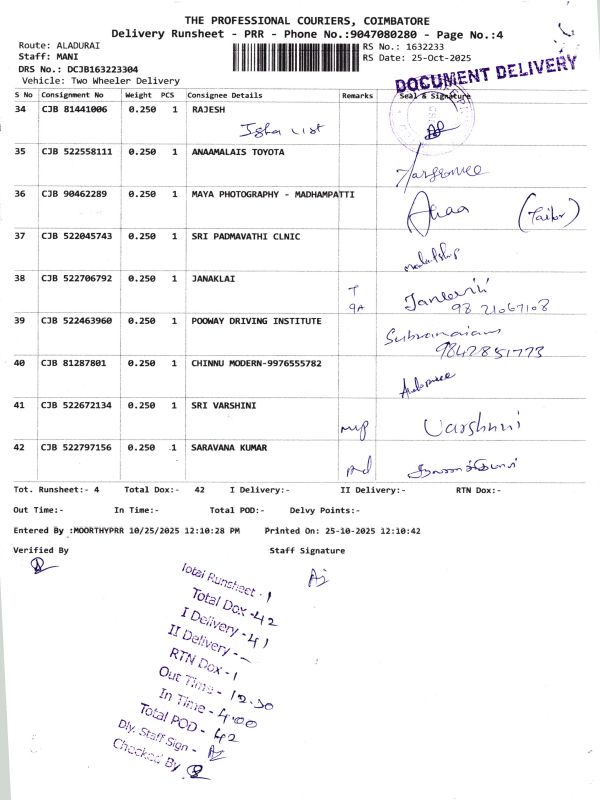 THE PROFESSIONAL COURIERS, COIMBATORE
Delivery Runsheet - PRR - Phone No.:9047080280 - Page No.:4
Route: ALADURAI
RS No.: 1632233
Staff: MANI
RS Date: 25-Oct-2025
DRS No.: DCJB163223304
Vehicle: Two Wheeler Delivery
DOCUMENT DELIVERY
S No Consignment No Weight PCS Consignee Details Remarks Seal & Signature
34 CJB 81441006 0.250 1 RAJESH
35 CJB 522558111 0.250 1 ANAAMALAIS TOYOTA
36 CJB 90462289 0.250 1 MAYA PHOTOGRAPHY - MADHAMPATTI
(Tailor)
37 CJB 522045743 0.250 1 SRI PADMAVATHI CLNIC
38 CJB 522706792 0.250 1 JANAKLAI
98 21067108
39 CJB 522463960 0.250 1 POOWAY DRIVING INSTITUTE
9842851773
40 CJB 81287801 0.250 1 CHINNU MODERN-9976555782
41 CJB 522672134 0.250 1 SRI VARSHINI
Varshini
42 CJB 522797156 0.250 1 SARAVANA KUMAR
Tot. Runsheet:- 4 Total Dox:- 42 I Delivery:- II Delivery:- RTN Dox:-
Out Time:- In Time:- Total POD:- Delvy Points:-
Entered By :MOORTHYPRR 10/25/2025 12:10:28 PM Printed On: 25-10-2025 12:10:42
Verified By Staff Signature
Total Runsheet - 1
Total Dox - 42
I Delivery - 41
II Delivery - -
RTN Dox - 1
Out Time - 12.30
In Time - 4.00
Total POD - 42
Dly. Staff Sign -
Checked By